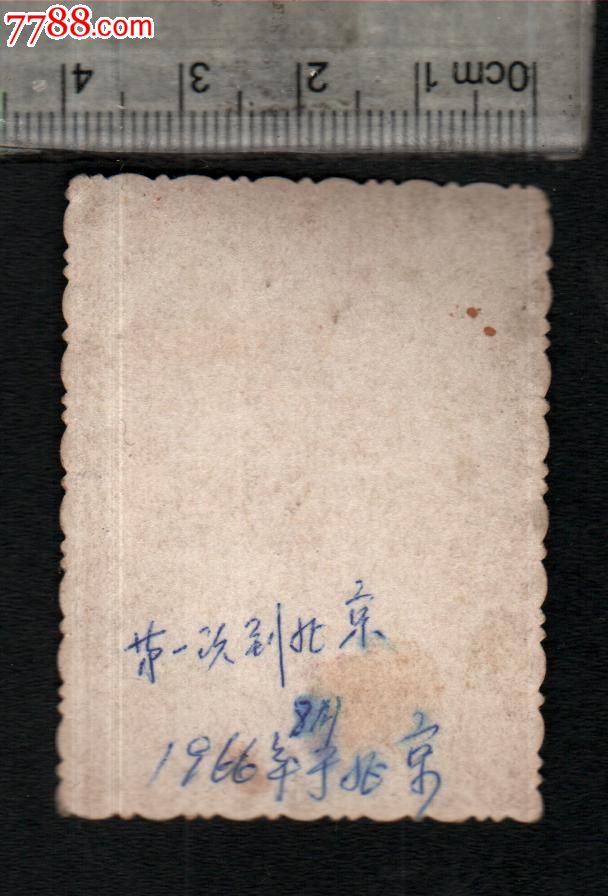 7788.com
0cm 1 2 3 4
第一次到北京
8月
1966年于北京